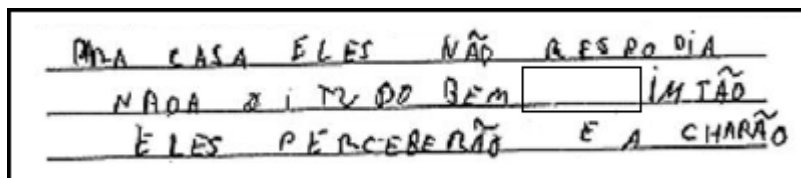 PARA CASA ELES NÃO RESPODIA
NADA BEM IMTÃO
ELES PERCEBERÃO E A CHARÃO